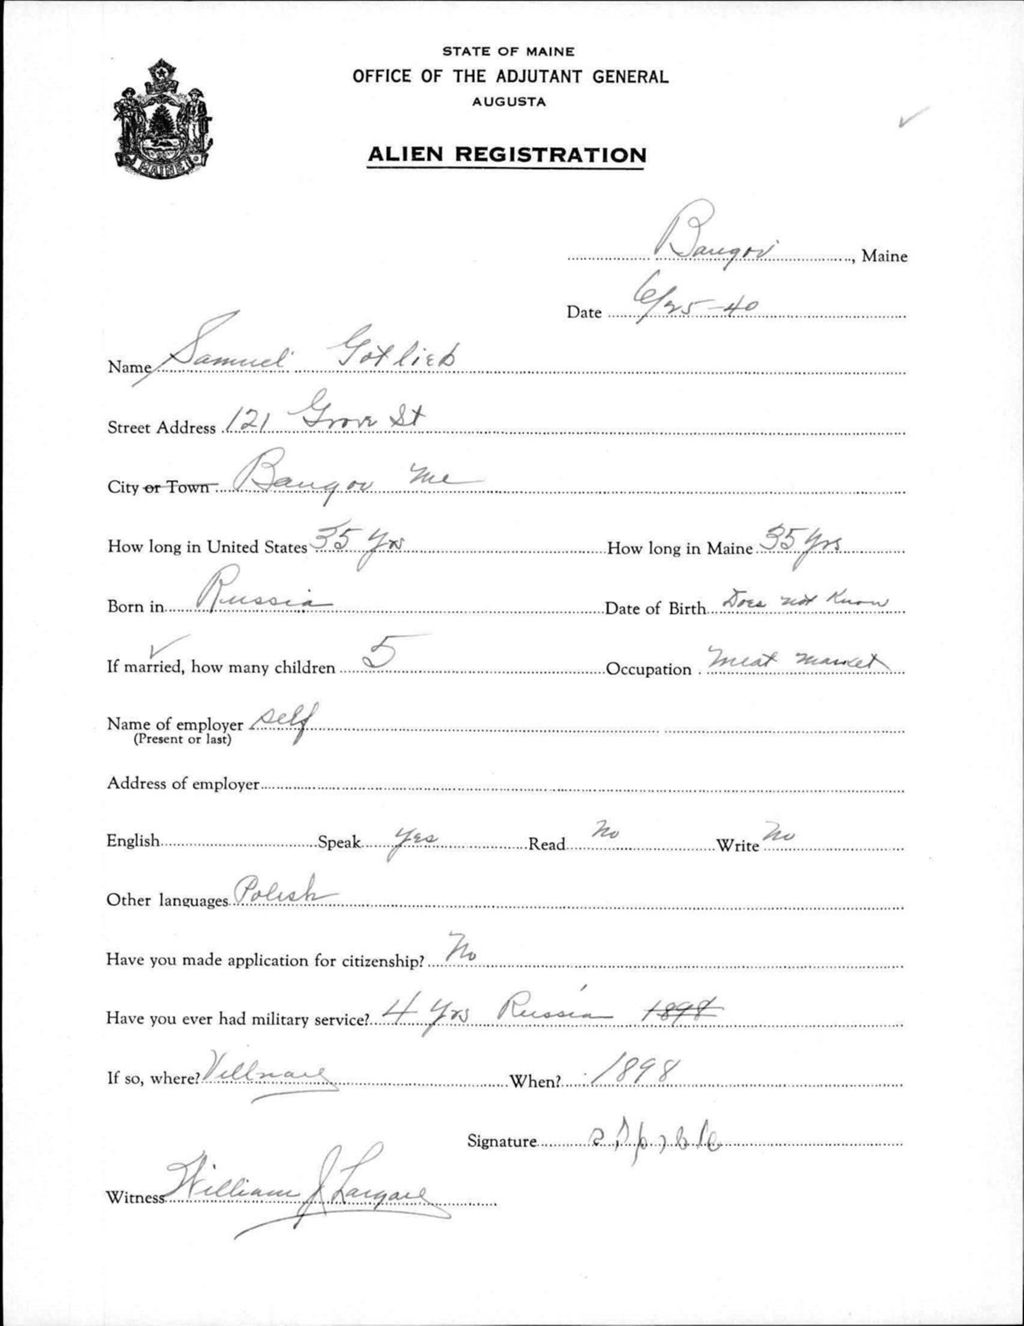 STATE OF MAINE
OFFICE OF THE ADJUTANT GENERAL
AUGUSTA
MAINE
ALIEN REGISTRATION
Bangor, Maine
Date 6/25-40
Name Samuel Gotlieb
Street Address 121 Grove St
City or Town Bangor Me
How long in United States 35 Yrs How long in Maine 35 Yrs
Born in Russia Date of Birth Does not Know
If married, how many children 5 Occupation Meat market
Name of employer self
(Present or last)
Address of employer
English Speak Yes Read No Write No
Other languages Polish
Have you made application for citizenship? No
Have you ever had military service? 4 Yrs Russia 1898
If so, where? When? 1898
Signature
Witness William J